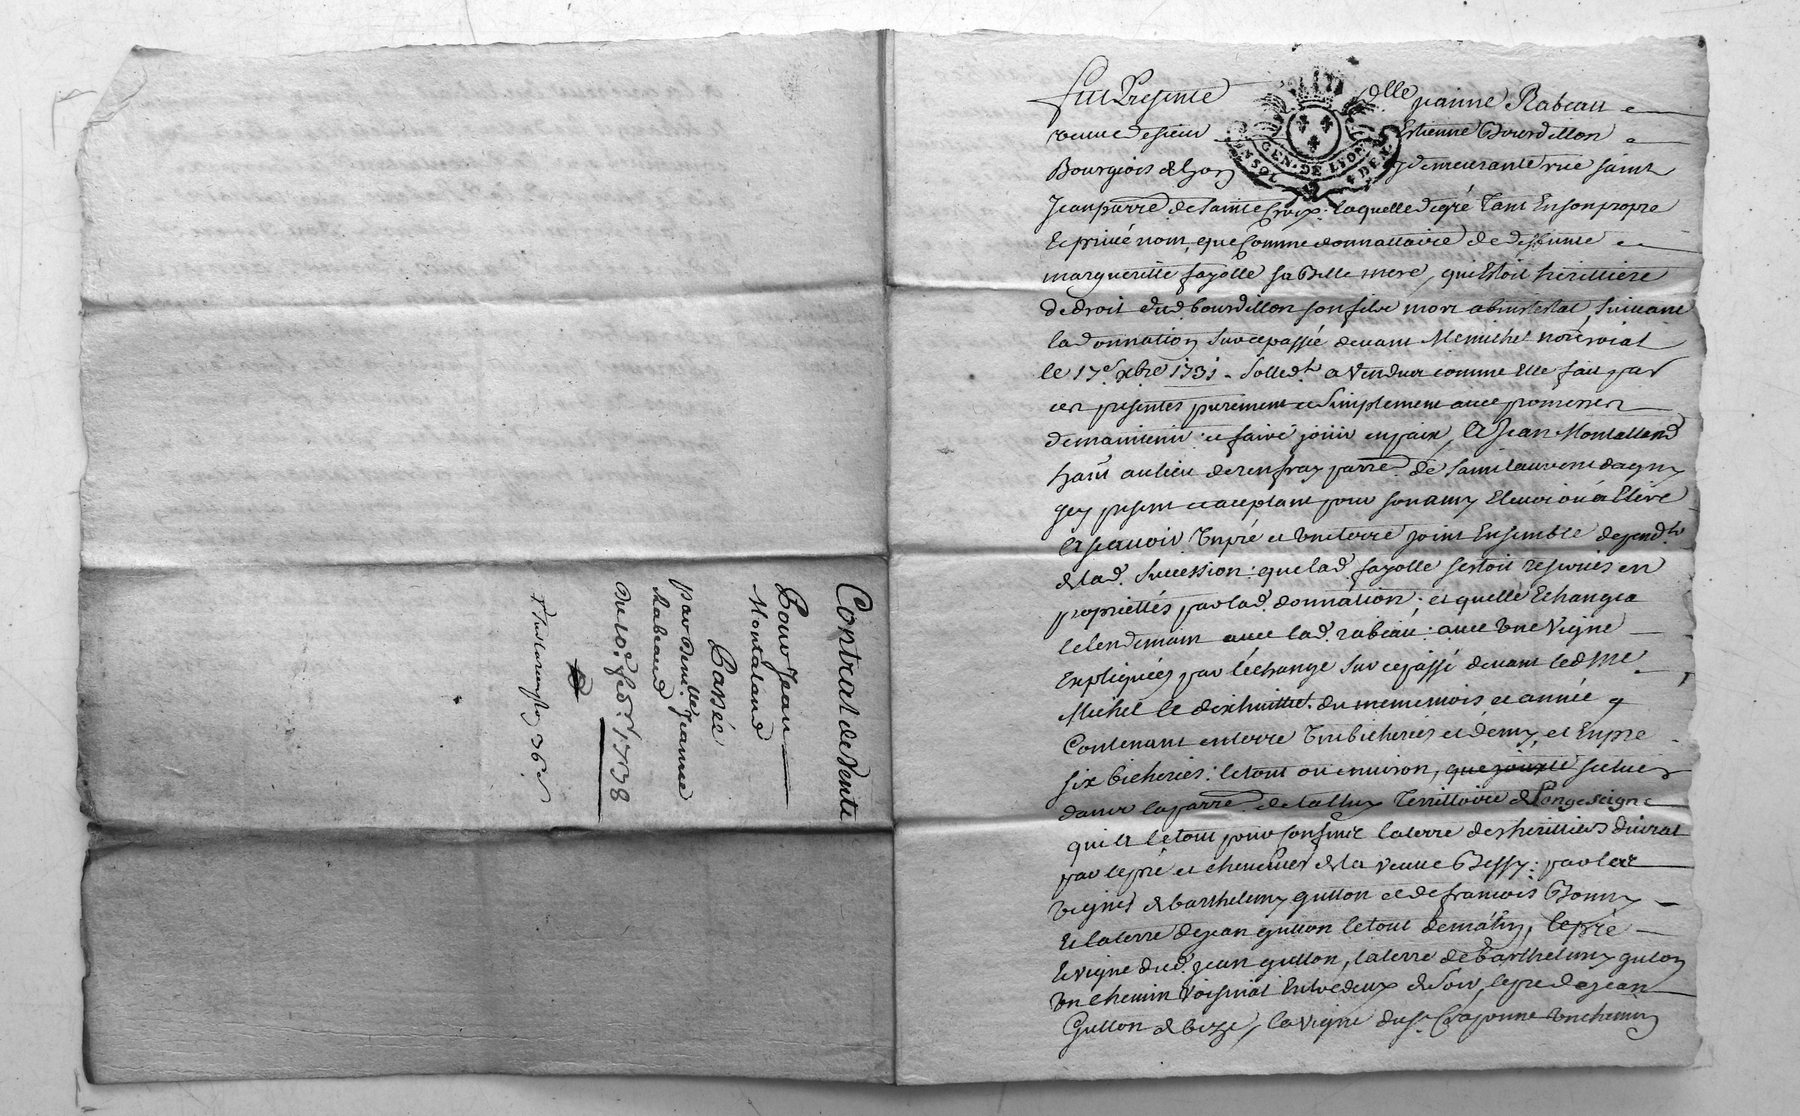 Contrat de Vente
Pour Jean
Montaland
Passée
par demlle jeanne
Rabeaud
Du 10e febr. 1738
36s
GEN. DE LYON
2 SOLS
Fut Presente dlle jeanne Rabeau
veuve de sieur Estienne Bourdillon
Bourgeois de Lyon y demeurante rue saint
Jean parre. de Sainte Croix: laquelle de gré tant En son propre
Et privé nom, que Comme donnattaire de deffunte
margueritte fayolle sa Belle mere, qui Estoit heritiere
de droit dud. bourdillon son fils mort abintestat, suivant
la donnation sur ce passée devant Me michel nore roial
le 17e. xbre 1731. a vendu comme Elle fait par
ces presentes purement et simplement avec promesses
de maintenir et faire jouir en paix, A Jean Montalland
hant. au lieu de renfray parre. de saint laurent dagny
jcy present et acceptant pour son amy Eleu ou à Elire
a sçavoir Un pré et une terre joint Ensemble depend.ts
de lad. succession: que lad. fayolle sestoit reservés en
proprietés par lad. donnation; et quelle Echangea
le lendemain avec lad. rabeau: avec une Vigne
Expliquées par l'échange sur ce passé devant led Me
Michel le dixhuittie. du meme mois et année
Contenant en terre Trois bicherées et demy, et En pré
six bicherées: le tout ou environ, scitués
dans la parre. de talluy Territtoire de Longeseigne
qui a le tout pour Confins la terre des heritiers
par le pré et chenevier de la veuve Bessy: par les
vignes de barthelemy gutton et de francois Bonny
Et la terre de jean gutton le tout de matin, le pré
Et vigne dud. jean gutton, la terre de barthelemy guton
un chemin voisinal Entredeux de soir, le pre de jean
Gutton de bize, la vigne du sr. Crajonne un chemin